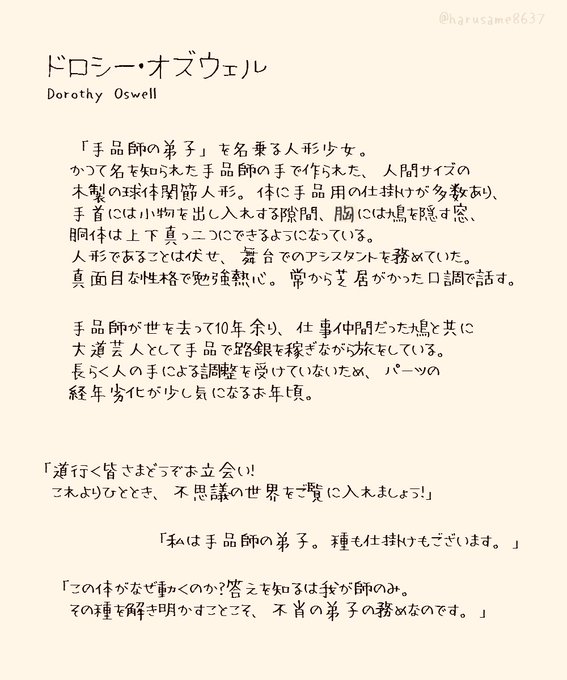 @harusame8637
ドロシー・オズウェル
Dorothy Oswell
「手品師の弟子」を名乗る人形少女。
かつて名を知られた手品師の手で作られた、人間サイズの
木製の球体関節人形。体に手品用の仕掛けが多数あり、
手首には小物を出し入れする隙間、胸には鳩を隠す窓、
胴体は上下真っ二つにできるようになっている。
人形であることは伏せ、舞台でのアシスタントを務めていた。
真面目な性格で勉強熱心。常から芝居がかった口調で話す。
手品師が世を去って10年余り、仕事仲間だった鳩と共に
大道芸人として手品で路銀を稼ぎながら旅をしている。
長らく人の手による調整を受けていないため、パーツの
経年劣化が少し気になるお年頃。
「道行く皆さまどうぞお立会い!
これよりひととき、不思議の世界をご覧に入れましょう!」
「私は手品師の弟子。種も仕掛けもございます。」
「この体がなぜ動くのか?答えを知るは我が師のみ。
その種を解き明かすことこそ、不肖の弟子の務めなのです。」